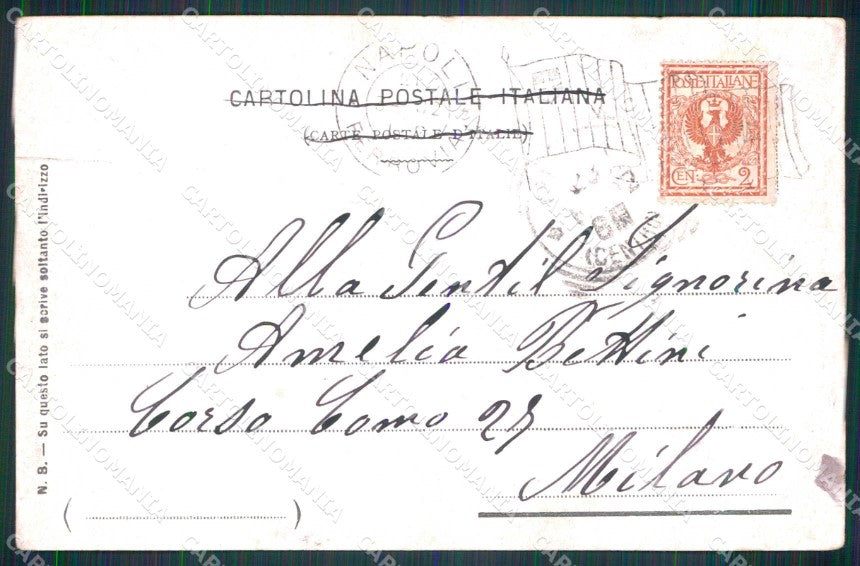 NAPOLI
FERROVIA
CARTOLINA POSTALE ITALIANA
(CARTE POSTALE D'ITALIE)
POSTE ITALIANE
CEN. 2
(CENTRO
Alla Gentil Signorina
Amelia Bettini
Corso Como 25
Milano
N. B. — Su questo lato si scrive soltanto l'indirizzo
CARTOLINOMANIA